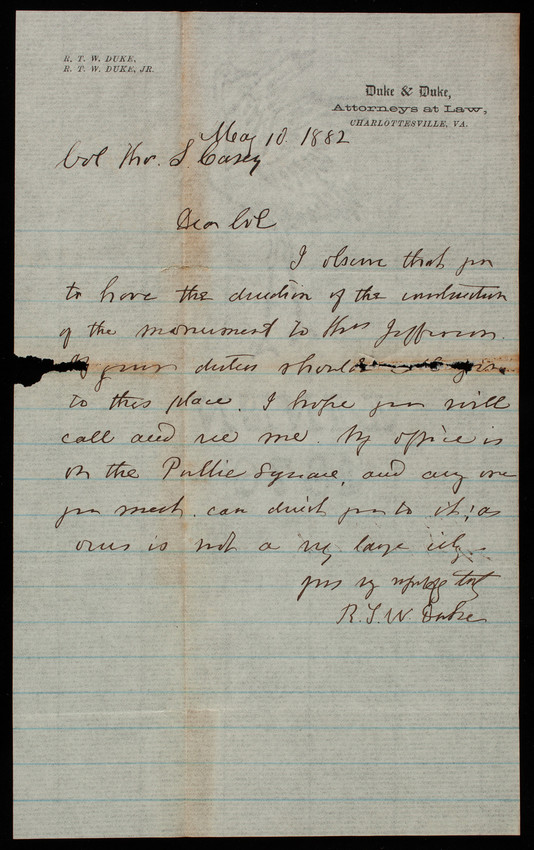 R. T. W. DUKE,
R. T. W. DUKE, JR.
Duke & Duke,
Attorneys at Law,
CHARLOTTESVILLE, VA.
May 10. 1882
Col Tho. L. Casey
Dear Col
I observe that you
to have the direction of the construction
of the monument to Thos Jefferson.
If your duties should you
to this place. I hope you will
call and see me. My office is
on the Public Square, and any one
you meet, can direct you to it; as
ours is not a vy large city.
yrs vy
R. T. W. Duke